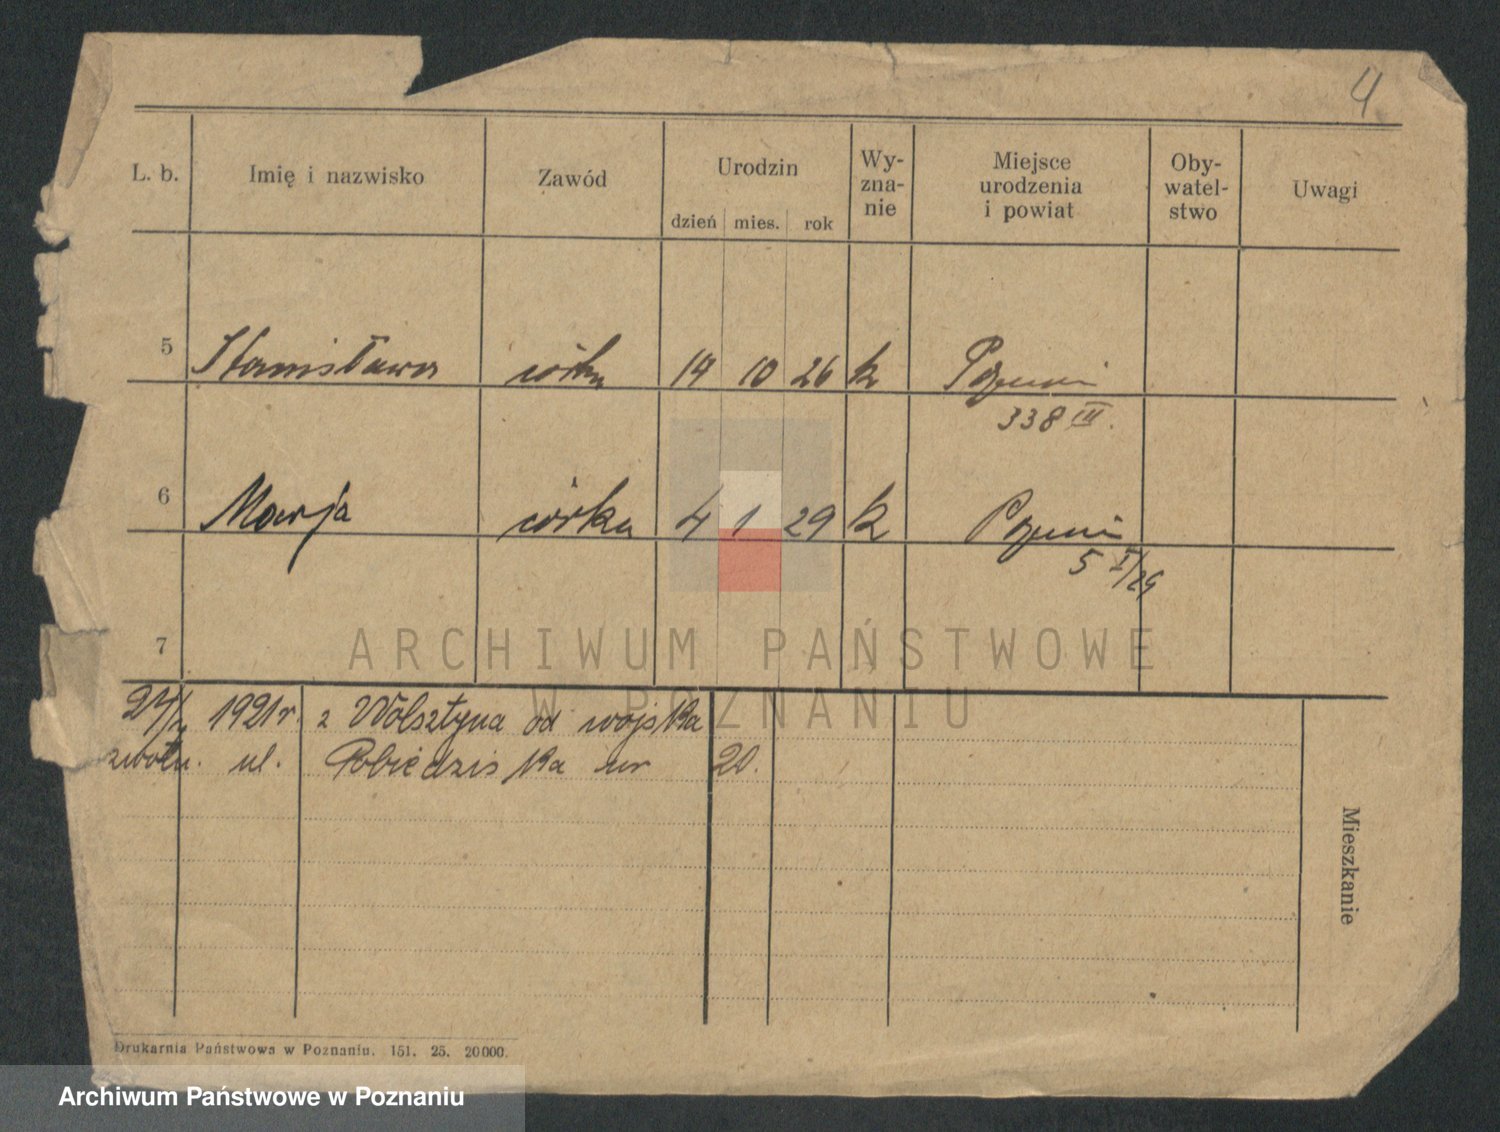 4
L. b. Imię i nazwisko Zawód Urodzin dzień mies. rok Wy-zna-nie Miejsce urodzenia i powiat Oby-watel-stwo Uwagi
5 Stanisława córka 14 10 26 k Poznań
338 III.
6 Marja córka 4 1 29 k Poznań
5 I/29
7
1921 r. z Wolsztyna od wojska
zwoln. ul. Pobiedziska nr 20.
Mieszkanie
Drukarnia Państwowa w Poznaniu. 151. 25. 20000.
ARCHIWUM PAŃSTWOWE
W POZNANIU
Archiwum Państwowe w Poznaniu